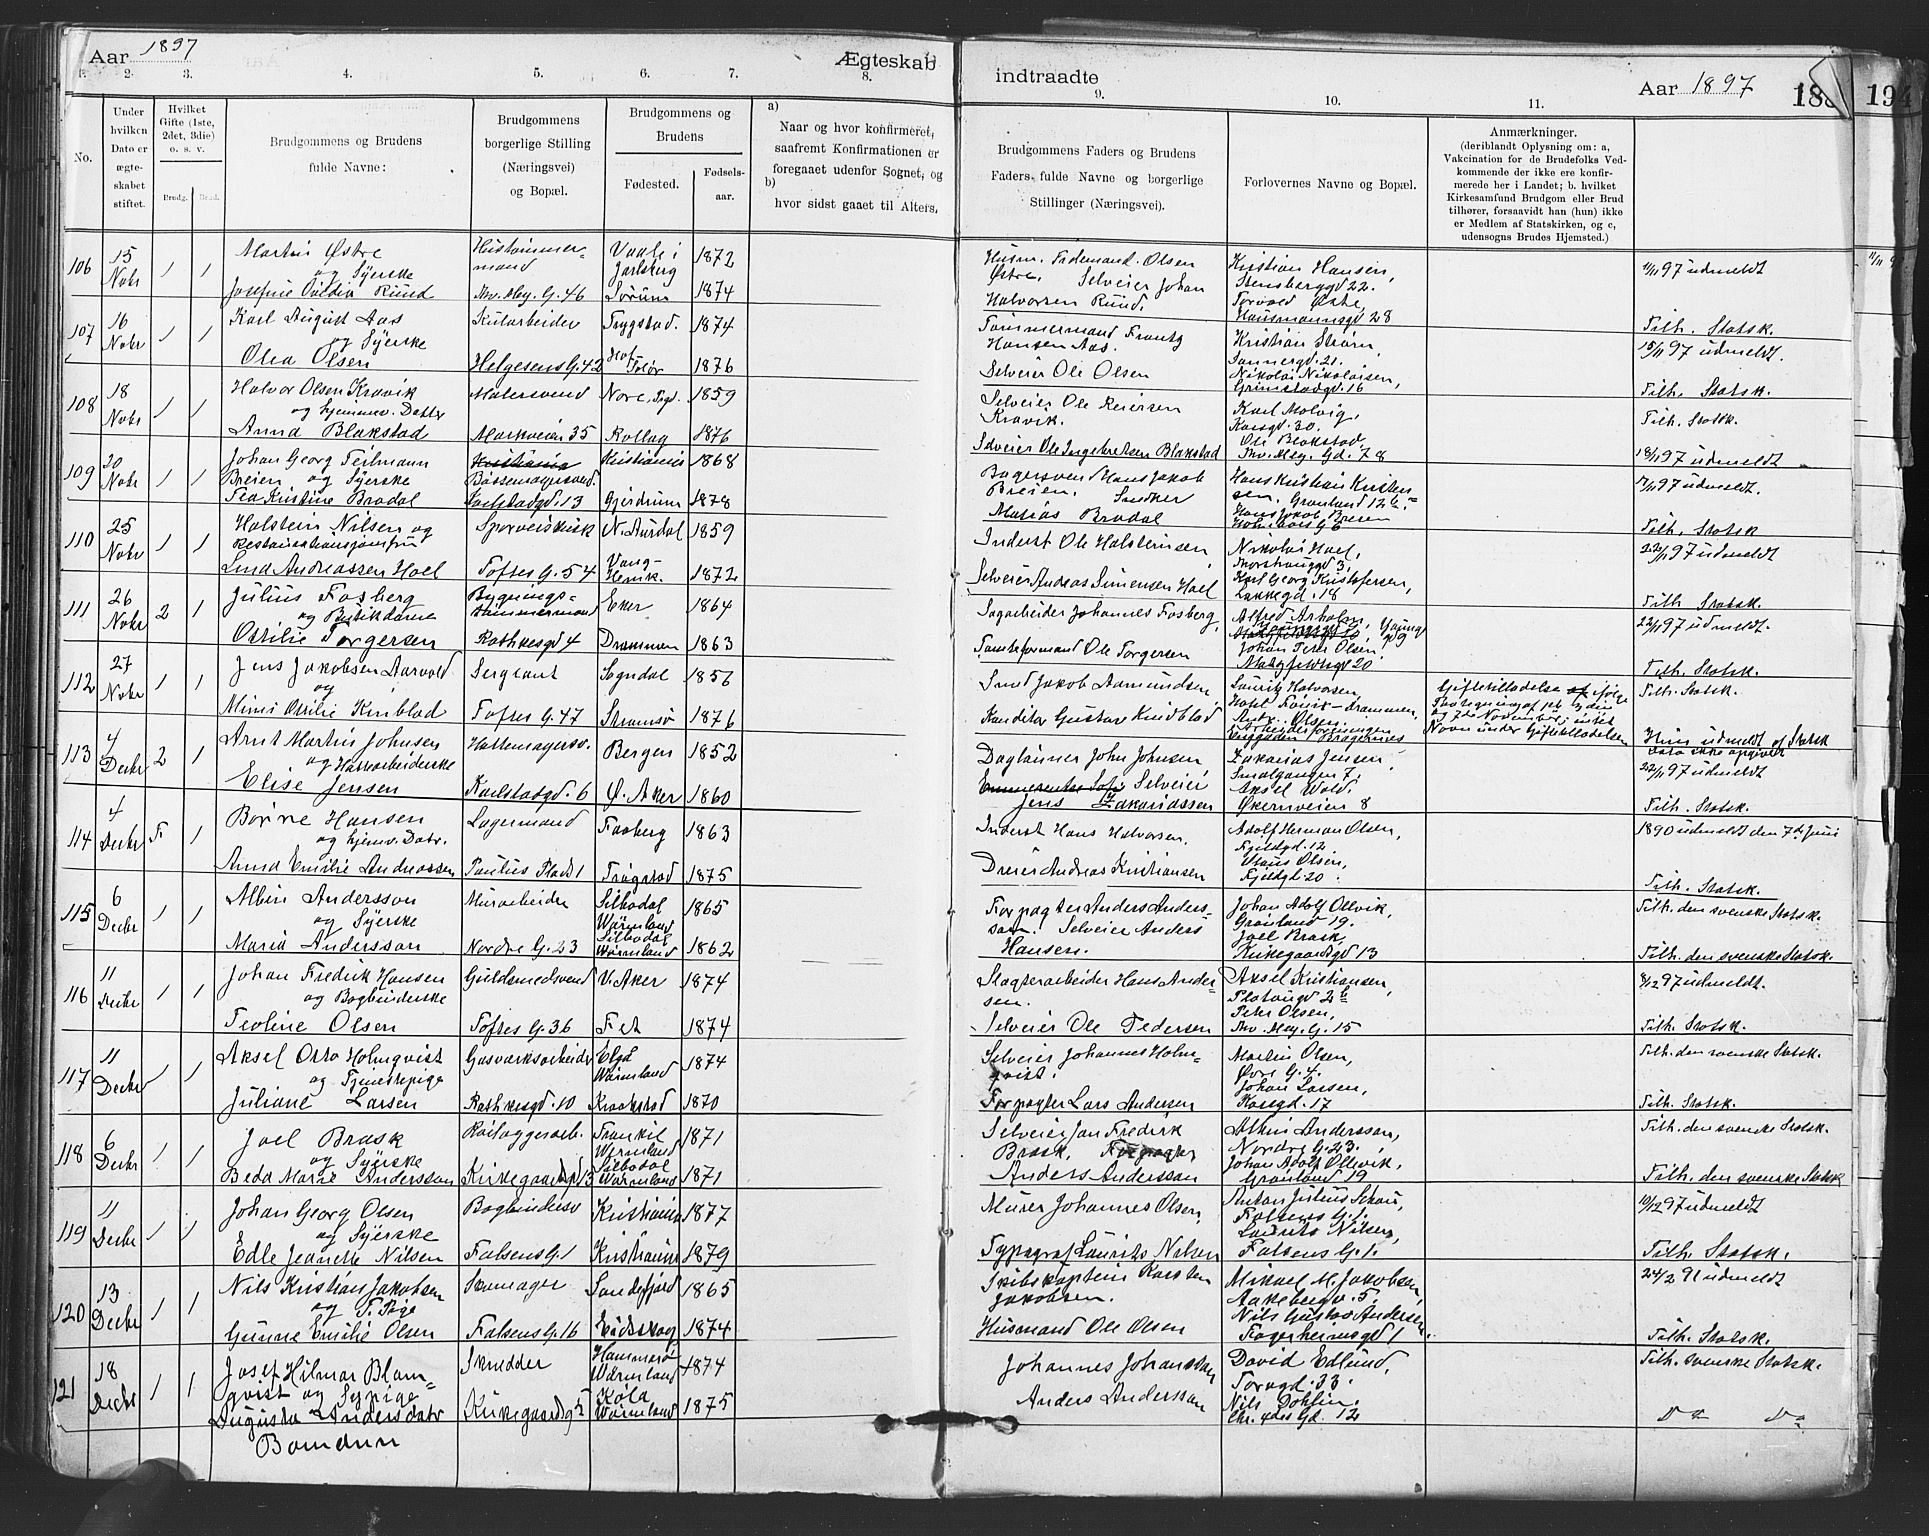 Aar 1897
Ægteskab
indtraadte
Aar 1897
194
1. 2. 3. 4. 5. 6. 7. 8. 9. 10. 11.
No.
Under hvilken Dato er ægteskabet stiftet.
Hvilket Gifte (1ste, 2det, 3die) o. s. v.
Brudg. Brud.
Brudgommens og Brudens fulde Navne:
Brudgommens borgerlige Stilling (Næringsvei) og Bopæl.
Brudgommens og Brudens
Fødested. Fødselsaar.
a) Naar og hvor konfirmeret, saafremt Konfirmationen er foregaaet udenfor Sognet, og
b) hvor sidst gaaet til Alters.
Brudgommens Faders og Brudens Faders fulde Navne og borgerlige Stillinger (Næringsvei).
Forlovernes Navne og Bopæl.
Anmærkninger.
(deriblandt Oplysning om: a, Vakcination for de Brudefolks Vedkommende der ikke ere konfirmerede her i Landet; b. hvilket Kirkesamfund Brudgom eller Brud tilhører, forsaavidt han (hun) ikke er Medlem af Statskirken, og c, udensogns Brudes Hjemsted.)
106 15 Nobr 1 1 Martin Østre Hustømmermand Vaale i Jarlsberg 1872
og Syerske
Josefine Ovidia Rund Thv. Mey. G. 46 Sørum 1874
Husm. Østre, Selveier Johan Halvorsen Rund.
Kristian Hansen, Stensberggd 22.
Torvald Østre, Hausmannsgd 28
11/11 97 udmeldt
Tilh. Statsk.
107 16 Nobr 1 1 Karl August Aas Trygstad. 1874
og Syerske
Olea Olsen Helgesens G. 42 Hof Solør 1876
Tømmermand Frantz Hansen Aas.
Selveier Ole Olsen
Kristian Strøm, Sannergd. 21.
Nikolai Nikolaisen, Grimstadgd. 16
15/11 97 udmeldt.
Tilh. Statsk.
108 18 Nobr 1 1 Halvor Olsen Kravik Malersvend Nore 1859
og hjemmev. Datter
Anna Blakstad Markveien 35 Rollag 1876
Selveier Ole Reiersen Kravik.
Selveier Ole Ingebretsen Blakstad
Karl Molvig, Korsgd. 30.
Ole Blakstad, Thv. Mey. Gd. 78
Tilh. Statsk.
18/11 97 udmeldt
109 20 Nobr 1 1 Johan Georg Teilmann Breien og Syerske Kristiania Bøssemagersvend Kristiania 1868
Tea Kristine Brodal Karlstadgd. 13 Gjerdrum 1878
Bagersvend Hans Jakob Breien. Snedker Matias Brodal
Hans Kristian Kristensen, Grønland 12 b.
Hans Jakob Breien
17/11 97 udmeldt.
Tilh. Statsk
110 25 Nobr 1 1 Halstein Nilsen og Sporveiskusk N. Aurdal 1859
Restaurationsjomfru
Lina Andreassen Hoel Toftes G. 54 Vang Hedmk. 1872
Inderst Ole Halsteinsen
Selveier Andreas Simensen Hoel
Nikolai Hoel, Thorshauggd 3,
Karl Georg Kristofersen, Lakkegd. 18
22/11 97 udmeldt
Tilh Statsk.
111 26 Nobr 2 1 Julius Fosberg Bygningstømmermand Eker 1864
og Butikdame
Ottilie Torgersen Rathkesgd 4 Drammen 1863
Sagarbeider Johannes Fosberg,
Tomteformand Ole Torgersen
Alfred Arholm, Youngsgd 9
Johan Peter Olsen, Markfeldtsgd 20
22/11 97 udmeldt.
Tilh. Statsk.
112 27 Nobr 1 1 Jens Jakobsen Aarvold Sergeant Sogndal 1856
og
Mimi Ottilie Kinblad Toftes G. 47 Strømsø 1876
Smed Jakob Aamundsen
Konditor Gustav Kindblad
Lauritz Halvorsen, Hotel Fønix - Drammen,
Antr. Olsen,
Bragernes
Giftetilladelse ifølge
Navn under Giftetilladelsen
Tilh. Statsk.
113 4 Decbr 2 1 Arnt Martin Johnsen Hattemagersv. Bergen 1852
og Hattearbeiderske
Elise Jensen Karlstadgd. 6 Ø. Aker 1860
Daglønner John Johnsen
Selveier Jens Zakariassen
Zakarias Jensen, Smalgangen 7,
Aksel Wold, Økernveien 8
Hun udmeldt af Statsk
Dato ikke opgivet
22/11 97 udmeldt
Tilh. Statsk.
114 4 Decbr F. 1 Børre Hansen Lagermand Fosberg 1863
og hjemv. Datr.
Anna Emilie Andreassen Paulus Plads 1 Trøgstad 1875
Inderst Hans Halvorsen.
Dreier Andreas Kristiansen
Adolf Herman Olsen, Fjeldgd. 12.
Klaus Olsen, Fjeldgd. 20
1890 udmeldt den 7de Juni
Tilh. Statsk.
115 6 Decbr 1 1 Albin Andersson Murarbeider Silbodal Wärmland 1865
og Syerske
Maria Andersson Nordre G. 23 Silbodal Wärmland 1862
Forpagter Anders Andersson. Selveier Anders Hansen.
Johan Adolf Ollvik, Grønland 19.
Joel Brask, Kirkegaardsgd 13
Tilh. den svenske Statsk.
Tilh. den svenske Statsk.
116 11 Decbr 1 1 Johan Fredrik Hansen Guldsmedsvend V. Aker 1874
og Bogbinderske
Teoline Olsen Toftes G. 36 Fet 1874
Slagterarbeider Hans Andersen.
Selveier Ole Pedersen
Aksel Kristiansen, Platougd 2 b
Peter Olsen, Thv. Mey. G. 15
8/12 97 udmeldt.
Tilh. Statsk.
117 11 Decbr 1 1 Aksel Otto Holmqvist Gasværksarbeider Elgå Wärmland 1874
og Tjenestepige
Juliane Larsen Rathkesgd. 10 Kraakstad 1870
Selveier Johannes Holmqvist.
Forpagter Lars Andersen
Martin Olsen, Øvre G. 4.
Johan Larsen, Korsgd. 17
Tilh. den svenske Statsk.
Tilh. Statsk.
118 6 Decbr 1 1 Joel Brask Railæggerarb. Trankil Wärmland 1871
og Syerske
Beda Marie Andersson Kirkegaardsgd 13 Silbodal Wärmland 1871
Selveier Jan Frederik Brask. Forpagter Anders Andersson
Albin Andersson, Nordre G. 23.
Johan Adolf Ollvik, Grønland 19
Tilh. den svenske Statsk.
Tilh. den svenske Statsk
119 11 Decbr 1 1 Johan Georg Olsen Bogbindersv Kristiania 1877
og Syerske
Edle Jeanette Nilsen Falsens G. 1 Kristiania 1879
Murer Johannes Olsen,
Typograf Laurits Nilsen
Anton Julius Schou, Falsens G. 1.
Laurits Nilsen, Falsens G. 1.
10/12 97 udmeldt
Tilh. Statsk.
120 13 Decbr 1 1 Nils Kristian Jakobsen Skomager Sandefjord 1865
og T. Pige
Gunne Emilie Olsen Falsens G. 16 Eidskog 1874
Skibskaptein Karsten Jakobsen.
Husmand Ole Olsen
Mikael M. Jakobsen, Aakebergv. 5.
Nils Gustav Andersen, Fagerheimsgd 1.
24/2 91 udmeldt
Tilh. Statsk.
121 18 Decbr 1 1 Josef Hilmar Blomqvist og Sypige Skrædder Hammarø Wärmland 1874
Augusta Andersdatr Kirkegaardsgd 5 Köla Wärmland 1875
Johannes Johansson
Anders Andersson
David Edlund, Torvgd. 33.
Nils Dahlin, Chr. 4des Gd. 12
Tilh. svenske Statsk.
Do Do